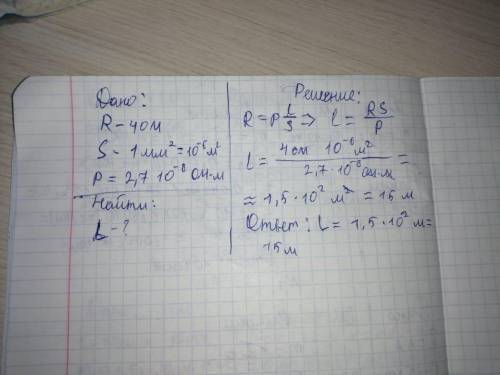 Дано:
R - 4 Ом
S - 1 мм² = 10⁻⁶ м²
P = 2,7 10⁻⁸ Ом·м
Найти:
L - ?
Решение:
R = P L/S ⇒ l = RS/P
L = 4 ом 10⁻⁶ м² / 2,7 · 10⁻⁸ Ом·м =
≈ 1,5 · 10² м² = 15 м
Ответ: L = 1,5 · 10² м =
15 м